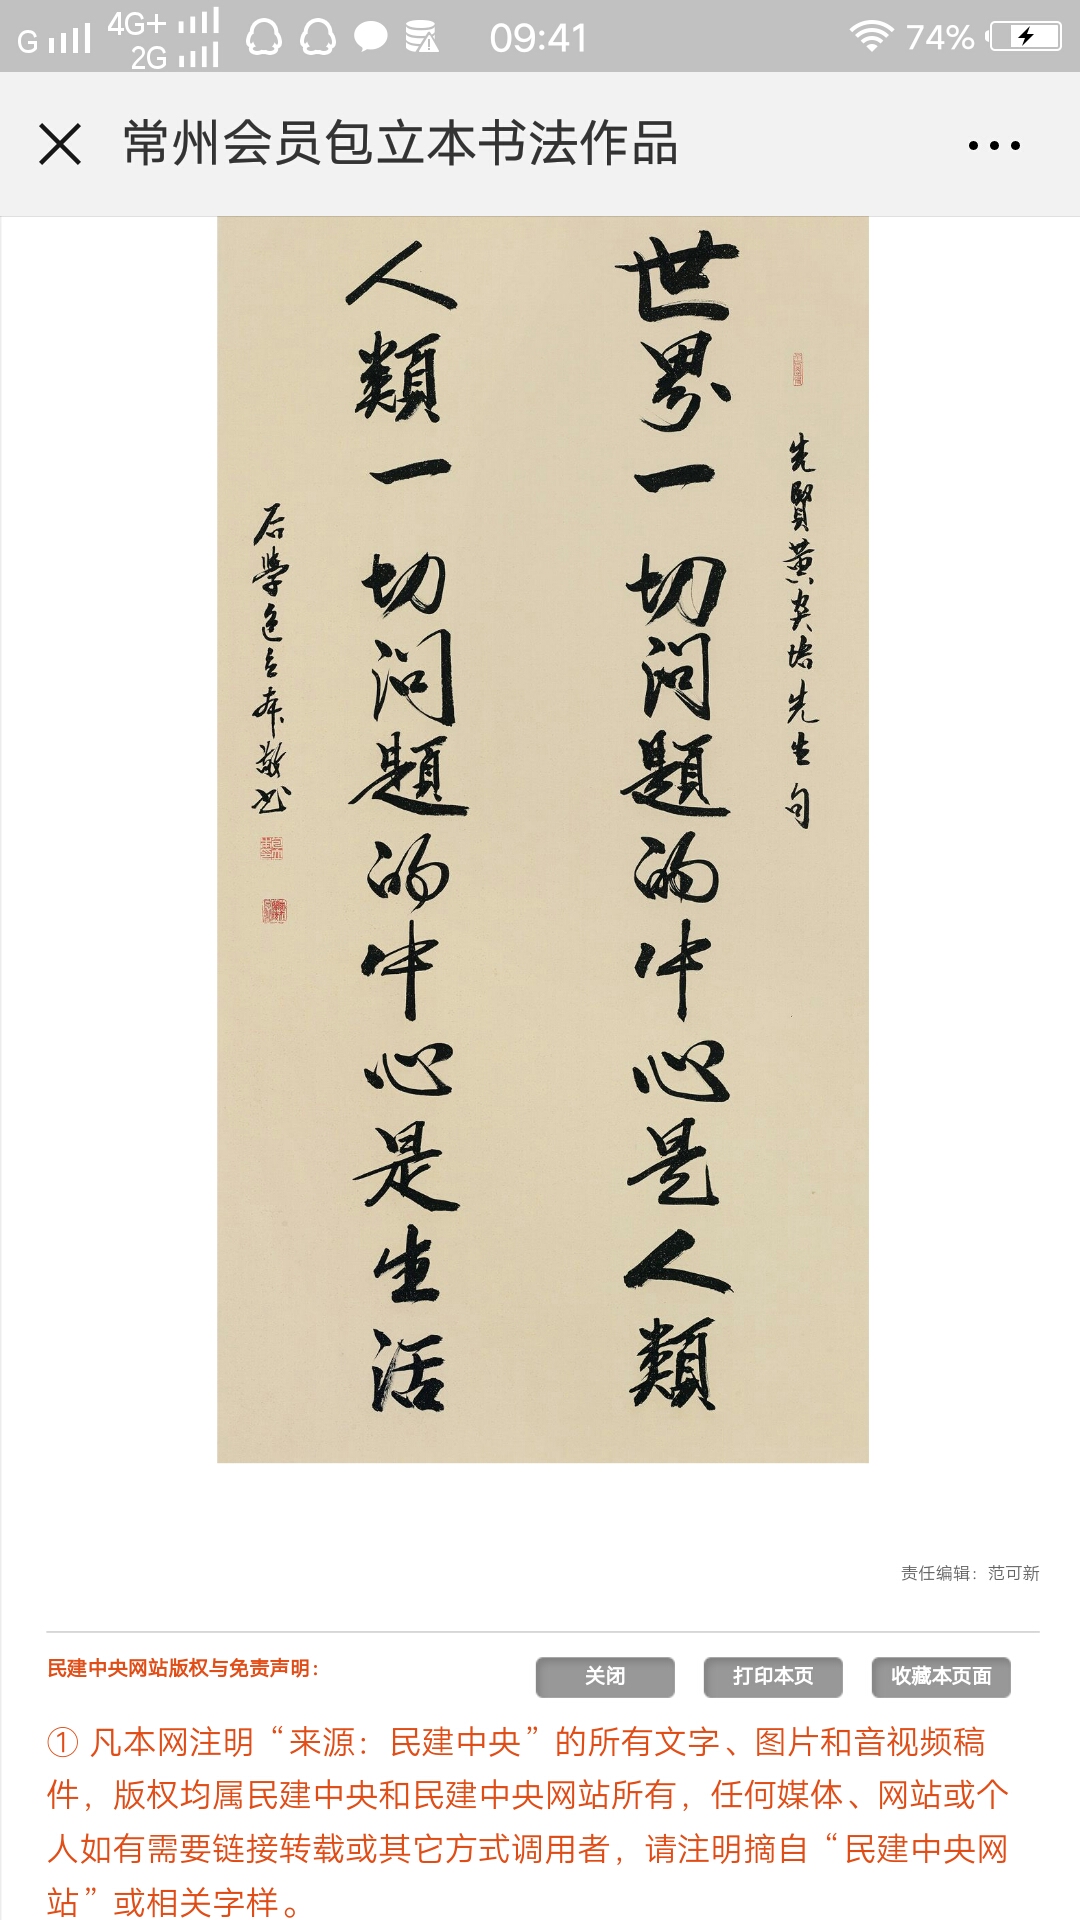 G 4G+ 2G 09:41 74%
常州会员包立本书法作品
先賢黄炎培先生句
世界一切问题的中心是人類
人類一切问题的中心是生活
后學包立本敬书
责任编辑：范可新
民建中央网站版权与免责声明：
关闭 打印本页 收藏本页面
① 凡本网注明“来源：民建中央”的所有文字、图片和音视频稿
件，版权均属民建中央和民建中央网站所有，任何媒体、网站或个
人如有需要链接转载或其它方式调用者，请注明摘自“民建中央网
站”或相关字样。